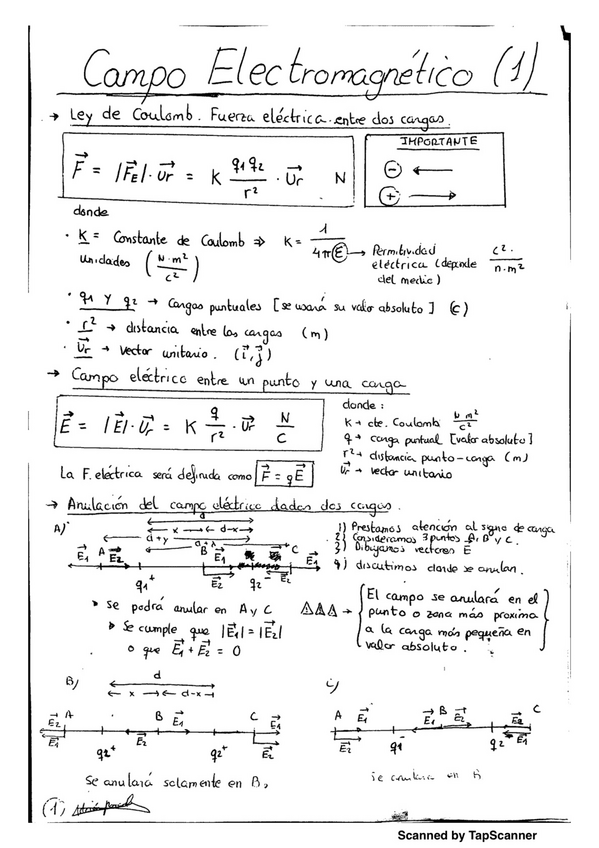 Campo Electromagnético (1)
→ Ley de Coulomb. Fuerza eléctrica entre dos cargas.
F⃗ = |F⃗E|·u⃗r = K q1q2/r² · u⃗r N
IMPORTANTE
⊖ ←
⊕ →
donde
· K = Constante de Coulomb ⇒ K = 1/4πε → Permitividad eléctrica (depende del medio) c²·/n·m²
unidades (N·m²/c²)
· q1 y q2 → Cargas puntuales [se usará su valor absoluto] (c)
· r² → distancia entre las cargas (m)
· u⃗r → vector unitario. (i⃗, j⃗)
→ Campo eléctrico entre un punto y una carga
E⃗ = |E⃗|·u⃗r = K q/r² · u⃗r N/C
donde:
K → cte. Coulomb N·m²/c²
q → carga puntual [valor absoluto]
r² → distancia punto-carga (m)
u⃗r → vector unitario
La F. eléctrica será definida como F⃗ = qE⃗
→ Anulación del campo eléctrico dados dos cargas.
A)
d
x d-x
d+y
E⃗1 A E⃗2 B E⃗1 C E⃗1
q1+ E⃗2 q2- E⃗2
1) Prestamos atención al signo de carga
2) Consideramos 3 puntos A, B y C.
3) Dibujamos vectores E⃗
4) discutimos donde se anulan.
▸ Se podrá anular en A y C
▸ Se cumple que |E⃗1| = |E⃗2|
o que E⃗1 + E⃗2 = 0
⚠⚠⚠ → El campo se anulará en el
punto o zona más proxima
a la carga más pequeña en
valor absoluto.
B)
d
x d-x
E⃗2 A B E⃗1 C E⃗1
E⃗1 q2+ E⃗2 q2+ E⃗2
Se anulará solamente en B,
C)
A E⃗1 E⃗1 B E⃗2 E⃗2 C
E⃗2 q1- q2- E⃗1
se anulará en B
(1)
Scanned by TapScanner